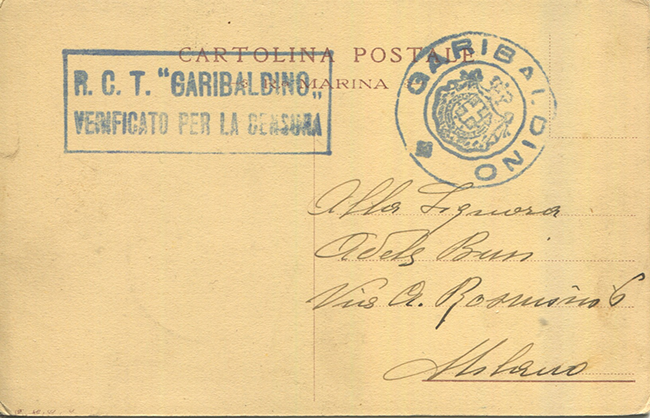 CARTOLINA POSTALE
R. MARINA
R. C. T. "GARIBALDINO"
VERIFICATO PER LA CENSURA
GARIBALDINO
Alla Signora
Adele Busi
Via A. Rosmini 6
Milano